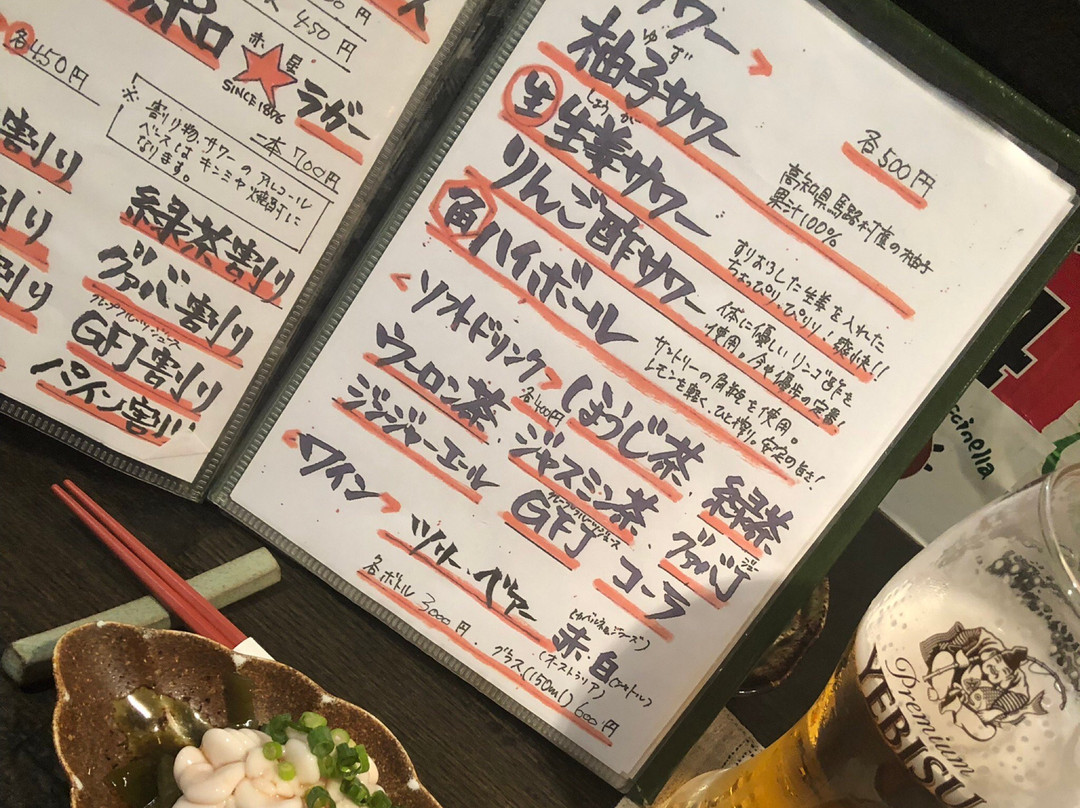 450円
各450円
赤星
SINCE1876
ラガー
一本 700円
※割り物、サワーのアルコール
ベースはキンミヤ焼酎に
なります。
割り
緑茶割り
グァバ割り
グレープフルーツジュース
GFJ割り
パイン割り
サワー
各500円
ゆず
柚子サワー
高知県馬路村産の柚子
果汁100%
しょうが
生 生姜サワー
すりおろした生姜を入れた
ちょっぴりぴりり!爽快!!
りんご酢サワー
体に優しいリンゴ酢を
使用。今や傷歩の定番!
角 ハイボール
サントリーの角瓶を使用。
レモンを軽く、ひと搾り。安定の旨さ!
<ソフトドリンク>
各400円
ウーロン茶、ほうじ茶、緑茶
ジンジャーエール
ジャスミン茶、グァバJ
グレープフルーツジュース
GFJ
コーラ
<ワイン>
ツリー・ベヤー
赤・白
(オーストラリア)
各ボトル 3000円、グラス(150ml) 600円
cinella
Premium
YEBISU